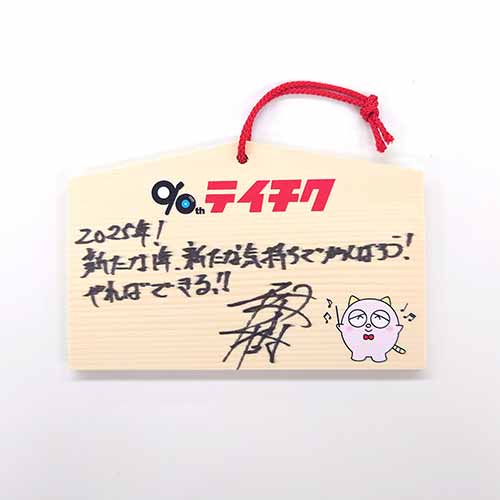 90th テイチク
2025年!
新たな年、新たな気持ちでがんばろう!
やればできる!!